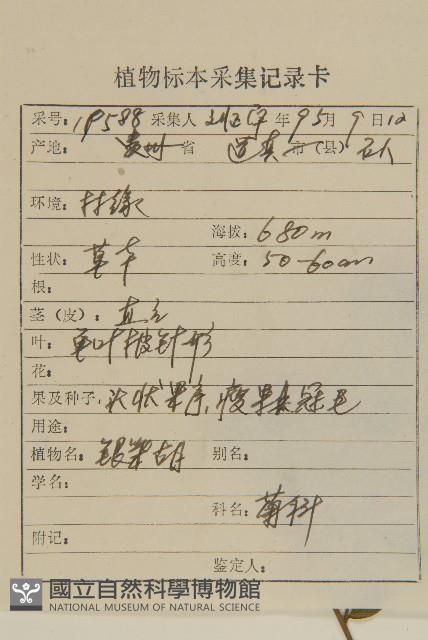 植物标本采集记录卡
采号: 19588 采集人 刘正宇 年 95 月 9 日 12
产地: 贵州 省 道真 市(县)
环境: 林缘
海拔: 680m
性状: 草本 高度: 50-60cm
根:
茎(皮): 直立
叶: 单叶披针形
花:
果及种子: 头状果序,瘦果具冠毛
用途:
植物名: 银柴胡 别名:
学名:
科名: 菊科
附记:
鉴定人:
國立自然科學博物館
NATIONAL MUSEUM OF NATURAL SCIENCE